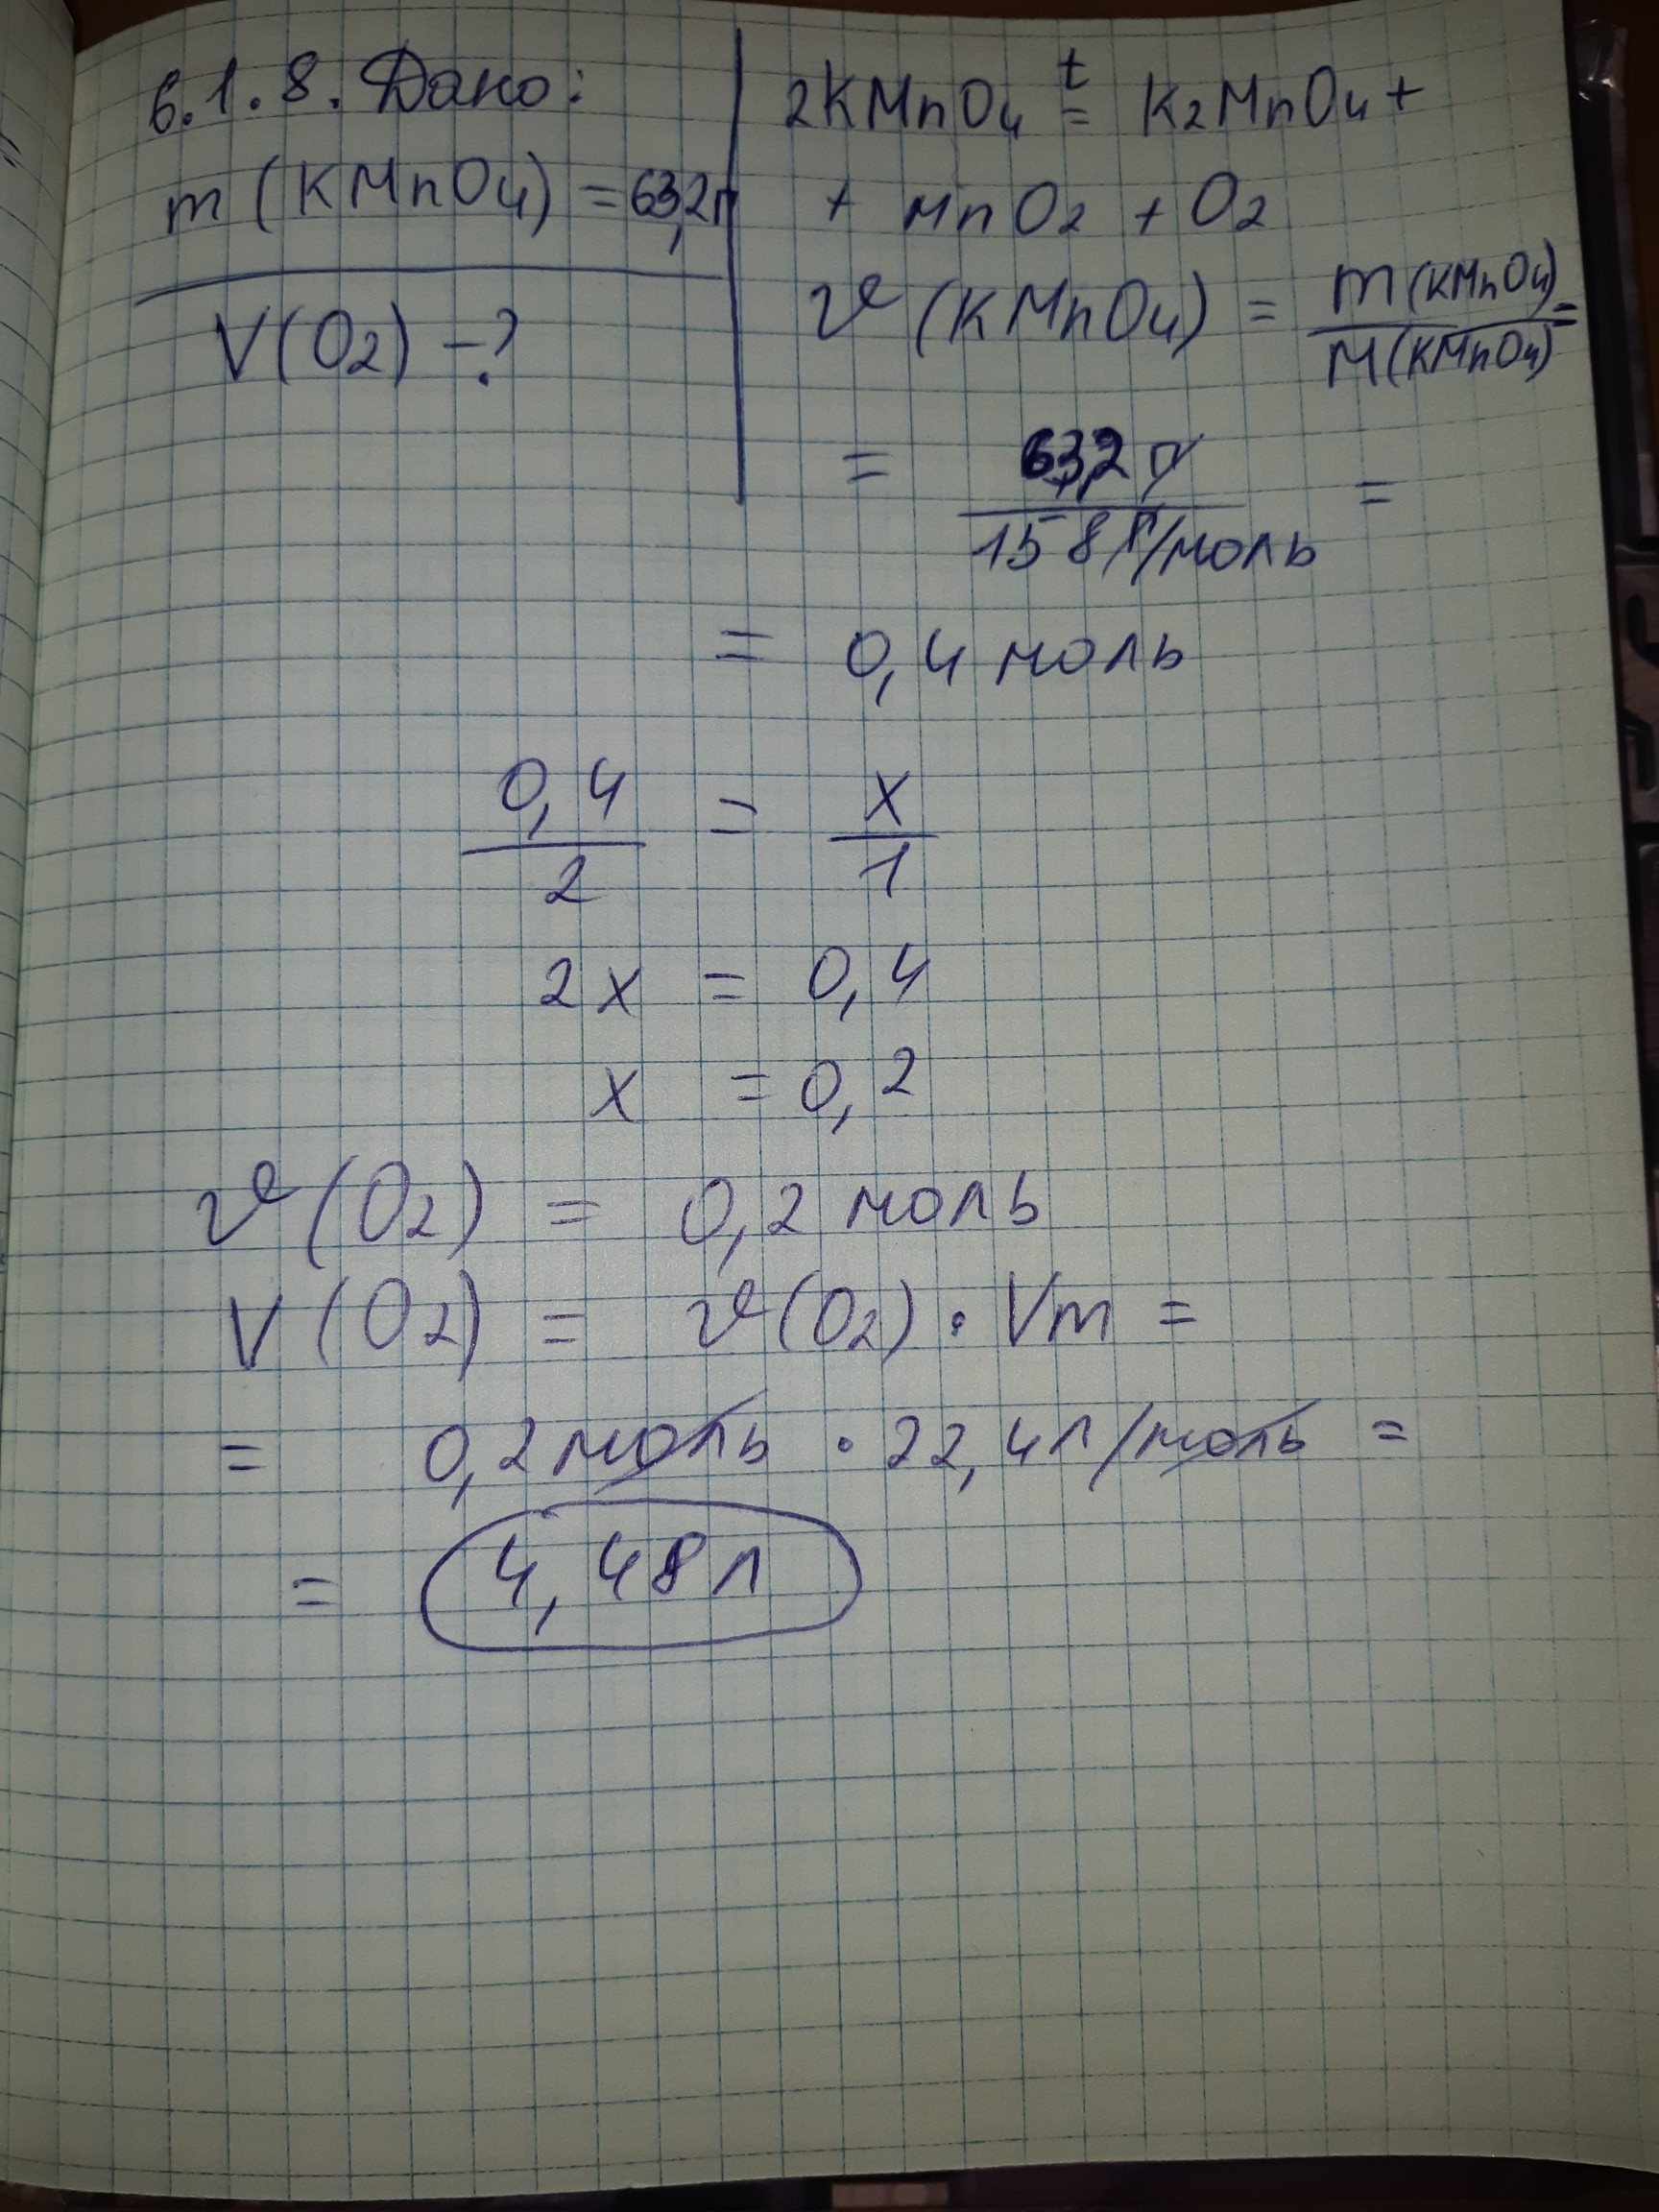 6.1.8. Дано:
m (KMnO4) = 63,2г
V(O2) - ?
2KMnO4 t = K2MnO4 +
+ MnO2 + O2
ν (KMnO4) = m(KMnO4) / M(KMnO4) =
= 63,2 г / 158 г/моль =
= 0,4 моль
0,4 / 2 = x / 1
2x = 0,4
x = 0,2
ν (O2) = 0,2 моль
V (O2) = ν(O2) · Vm =
= 0,2 моль · 22,4 л/моль =
= 4,48 л